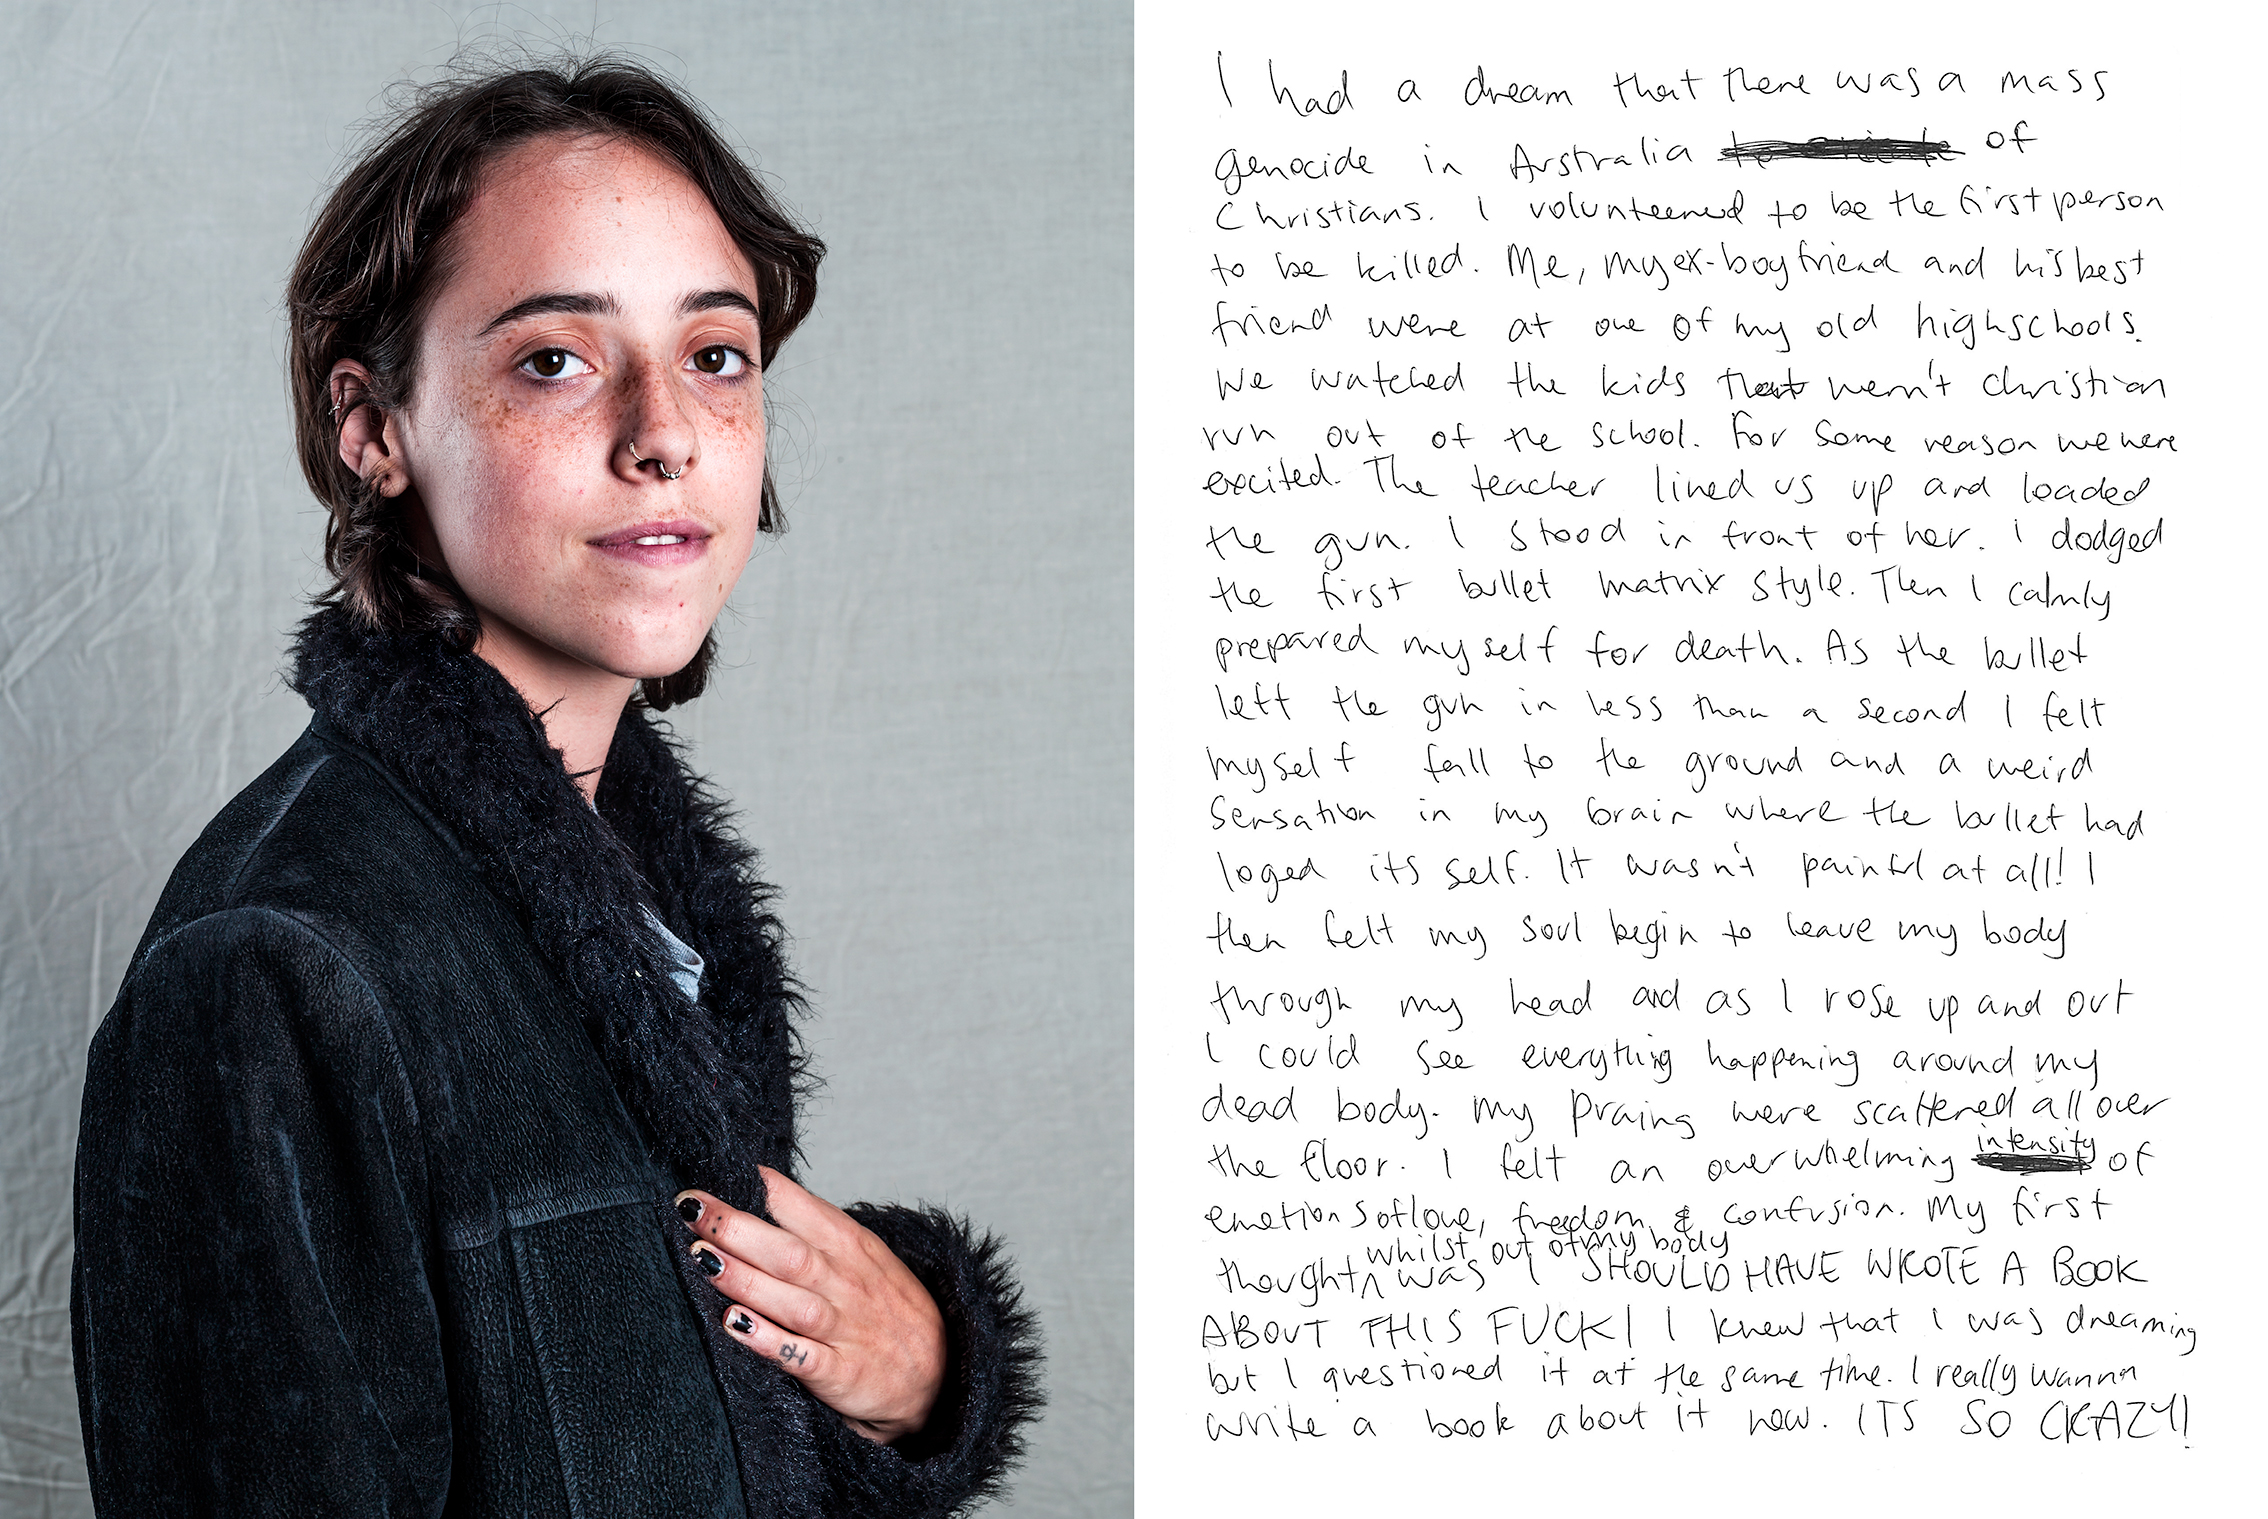 I had a dream that there was a mass
genocide in Australia of
Christians. I volunteered to be the first person
to be killed. Me, my ex-boyfriend and his best
friend were at one of my old highschools.
We watched the kids that wern't Christian
run out of the school. For some reason we were
excited. The teacher lined us up and loaded
the gun. I stood in front of her. I dodged
the first bullet matrix style. Then I calmly
prepared myself for death. As the bullet
left the gun in less than a second I felt
myself fall to the ground and a weird
sensation in my brain where the bullet had
loged its self. It wasn't painful at all! I
then felt my soul begin to leave my body
through my head and as I rose up and out
I could see everything happening around my
dead body. My brains were scattered all over
the floor. I felt an overwhelming intensity of
emotions of love, freedom & confusion. My first
thought whilst out of my body was I SHOULD HAVE WROTE A BOOK
ABOUT THIS FUCK! I knew that I was dreaming
but I questioned it at the same time. I really wanna
write a book about it now. ITS SO CRAZY!